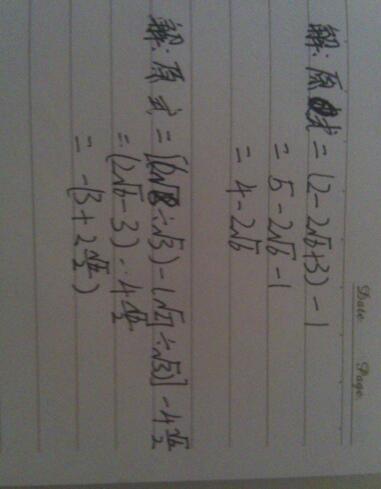 Date. Page.
解:原式=(2-2√6+3)-1
=5-2√6-1
=4-2√6
解:原式=[(6√8÷√3)-(√27÷√3)]-4√6/2
=(2√6-3)-4√6/2
=-(3+2√6/2)